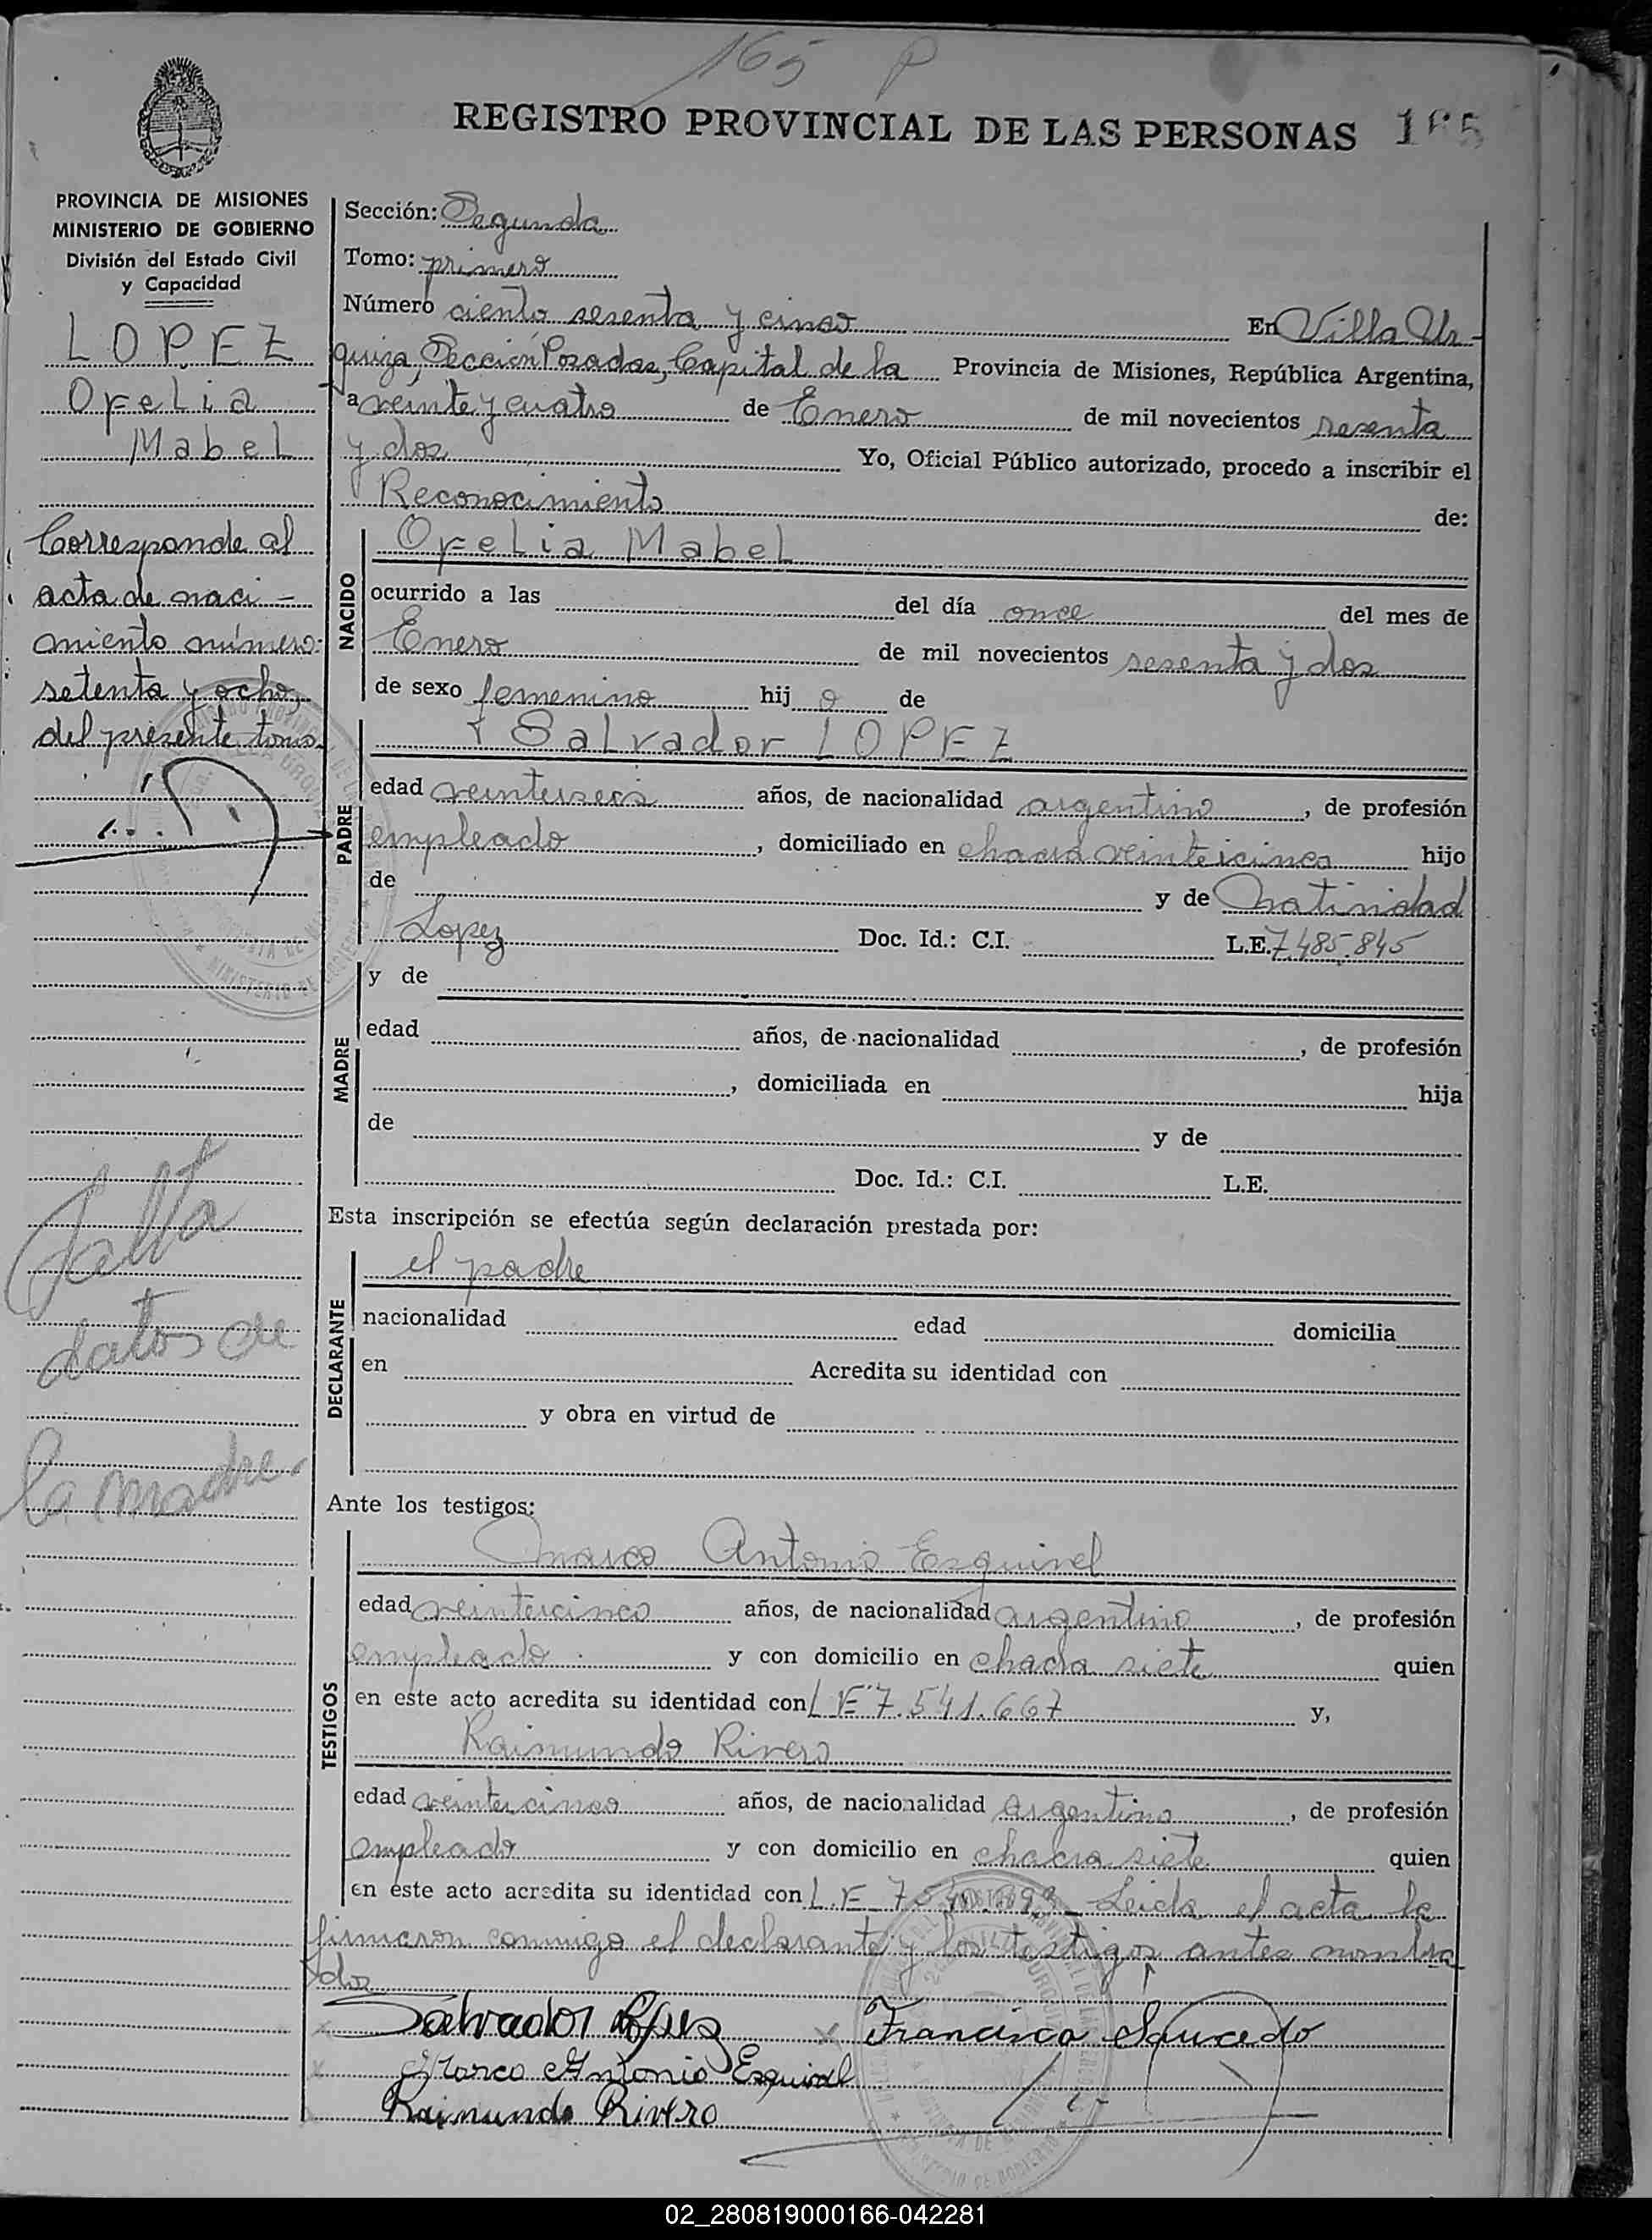 165 P
REGISTRO PROVINCIAL DE LAS PERSONAS 165
PROVINCIA DE MISIONES
MINISTERIO DE GOBIERNO
División del Estado Civil
y Capacidad
LOPEZ
Ofelia
Mabel
Corresponde al
acta de naci-
miento número
setenta y ocho,
del presente tomo.
Falta
datos de
la madre.
Sección: Segunda
Tomo: primero
Número ciento sesenta y cinco En Villa Ur-
quiza, Sección Posadas, Capital de la Provincia de Misiones, República Argentina,
a veinte y cuatro de Enero de mil novecientos sesenta
y dos Yo, Oficial Público autorizado, procedo a inscribir el
Reconocimiento de:
NACIDO
Ofelia Mabel
ocurrido a las del día once del mes de
Enero de mil novecientos sesenta y dos
de sexo femenino hij a de
PADRE
Salvador LOPEZ
edad veinteiseis años, de nacionalidad argentino, de profesión
empleado, domiciliado en chacra veinteicinco hijo
de y de Natividad
Lopez Doc. Id.: C.I. L.E. 7.485.845
MADRE
y de
edad años, de nacionalidad , de profesión
, domiciliada en hija
de y de
Doc. Id.: C.I. L.E.
Esta inscripción se efectúa según declaración prestada por:
DECLARANTE
el padre
nacionalidad edad domicilia
en Acredita su identidad con
y obra en virtud de
Ante los testigos:
TESTIGOS
Marco Antonio Esquivel
edad veinteicinco años, de nacionalidad argentino, de profesión
empleado y con domicilio en chacra siete quien
en este acto acredita su identidad con L E 7.541.667 y,
Raimundo Rivero
edad veinteicinco años, de nacionalidad argentino, de profesión
empleado y con domicilio en chacra siete quien
en este acto acredita su identidad con L.E. Leida el acta la
firmaron conmigo el declarante y los testigos antes nombra
dos
Salvador López x Francisco Saucedo
x Marco Antonio Esquivel
Raimundo Rivero
02_280819000166-042281